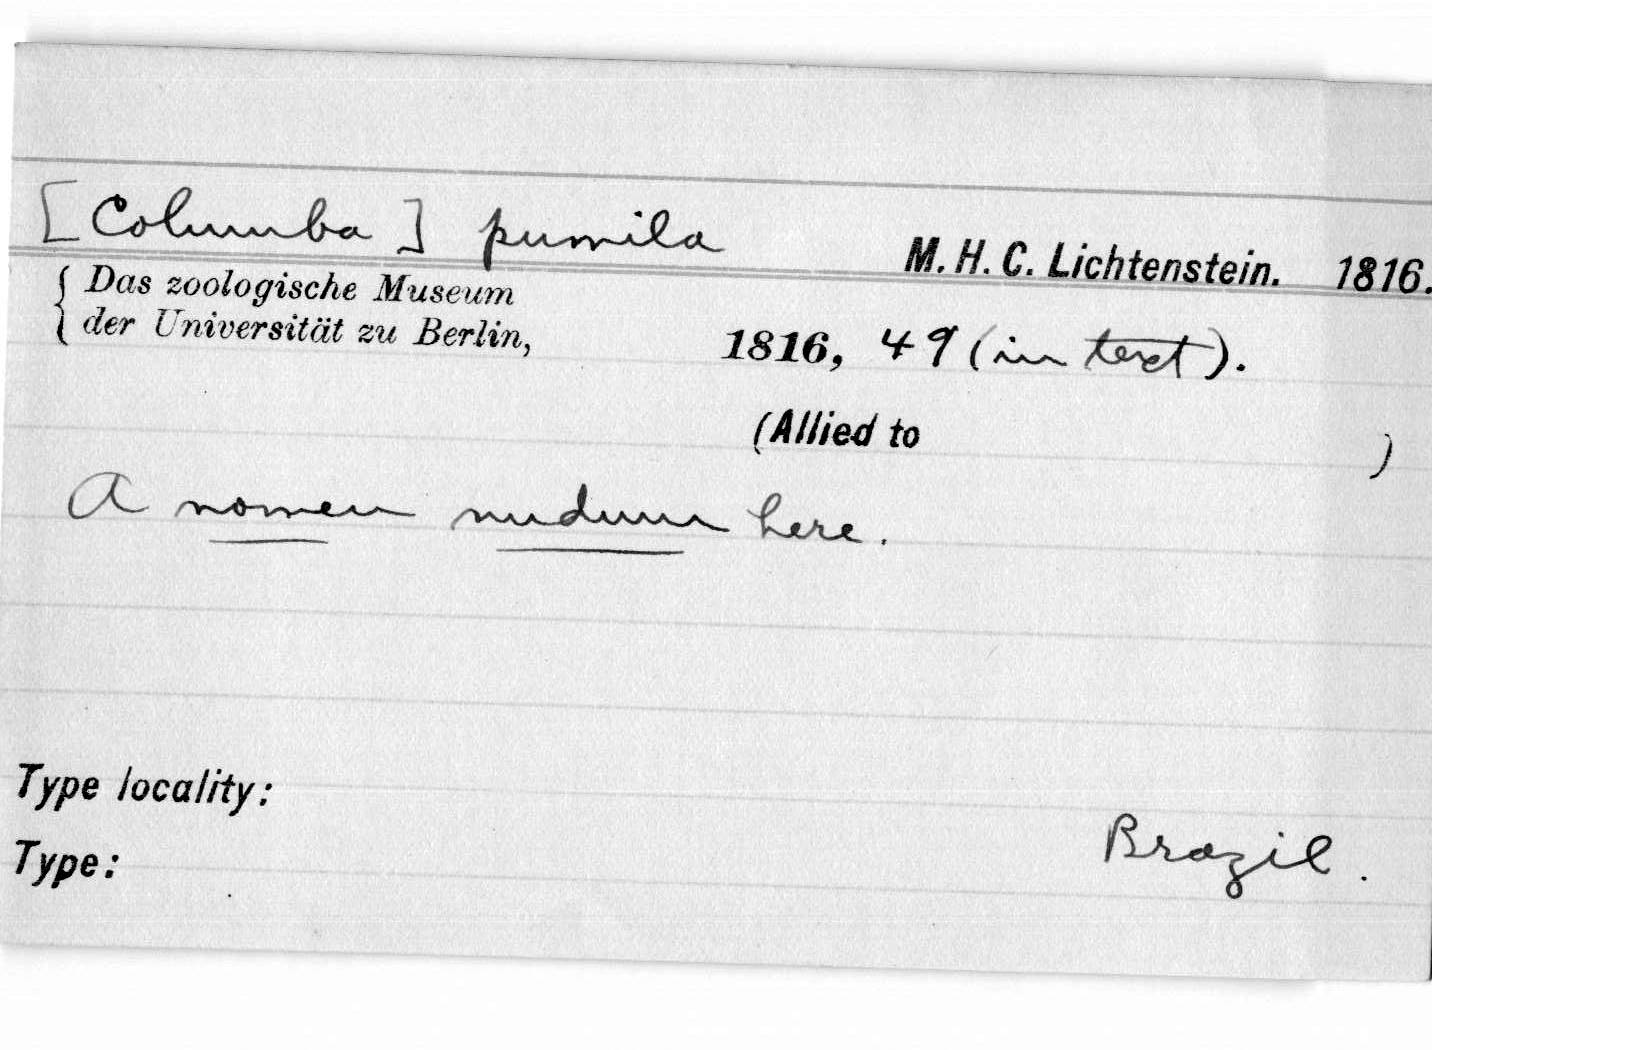 [Columba] pumila M. H. C. Lichtenstein. 1816.
{ Das zoologische Museum
der Universität zu Berlin, 1816, 49 (in text).
(Allied to )
A nomen nudum here.
Type locality:
Brazil.
Type: